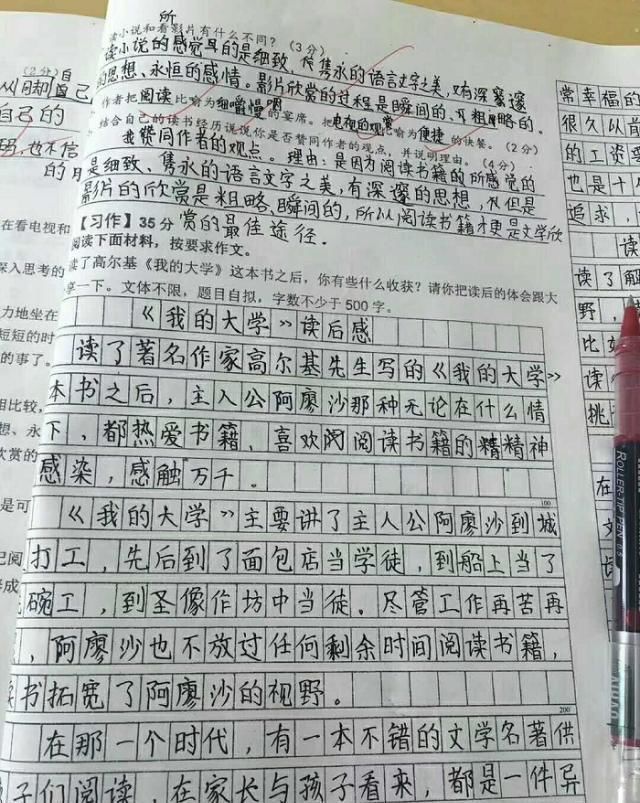 所
读小说和看影片有什么不同？（3分）
读小说的感觉的是细致、隽永的语言文字之美，又有深邃
的思想、永恒的感情。影片欣赏的过程是瞬间的、粗略的。
作者把阅读比喻为细嚼慢咽的宴席。把电视的观赏比喻为便捷的快餐。（2分）
结合自己的读书经历说说你是否赞同作者的观点，并说明理由。（4分）
我赞同作者的观点。理由：是因为阅读书籍的所感觉的
是细致、隽永的语言文字之美，有深邃的思想，但是
影片的欣赏是粗略、瞬间的，所以阅读书籍才更是文学欣
赏的最佳途径。
【习作】35分
阅读下面材料，按要求作文。
读了高尔基《我的大学》这本书之后，你有些什么收获？请你把读后的体会跟大
享一下。文体不限，题目自拟，字数不少于500字。
《我的大学》读后感
读了著名作家高尔基先生写的《我的大学》
本书之后，主人公阿廖沙那种无论在什么情
下，都热爱书籍、喜欢阅读书籍的精神
感染，感触万千。
100
《我的大学》主要讲了主人公阿廖沙到城
打工，先后到了面包店当学徒，到船上当了
碗工，到圣像作坊中当徒。尽管工作再苦再
，阿廖沙也不放过任何剩余时间阅读书籍，
读书拓宽了阿廖沙的视野。
200
在那一个时代，有一本不错的文学名著供
子们阅读，在家长与孩子看来，都是一件异
（2分）自
从用即自己
自己的
也不信
的月
在看电视和
深入思考的
力地坐在
短短的时
的事了。
相比较，
想、永
欣赏的
是可
已阅
形成
常幸福的
很久以前
的工资要
也是十
追求，
读
读了解
野，
比如
读
挑
在
文
ROLLER-TIP PEN 0.5